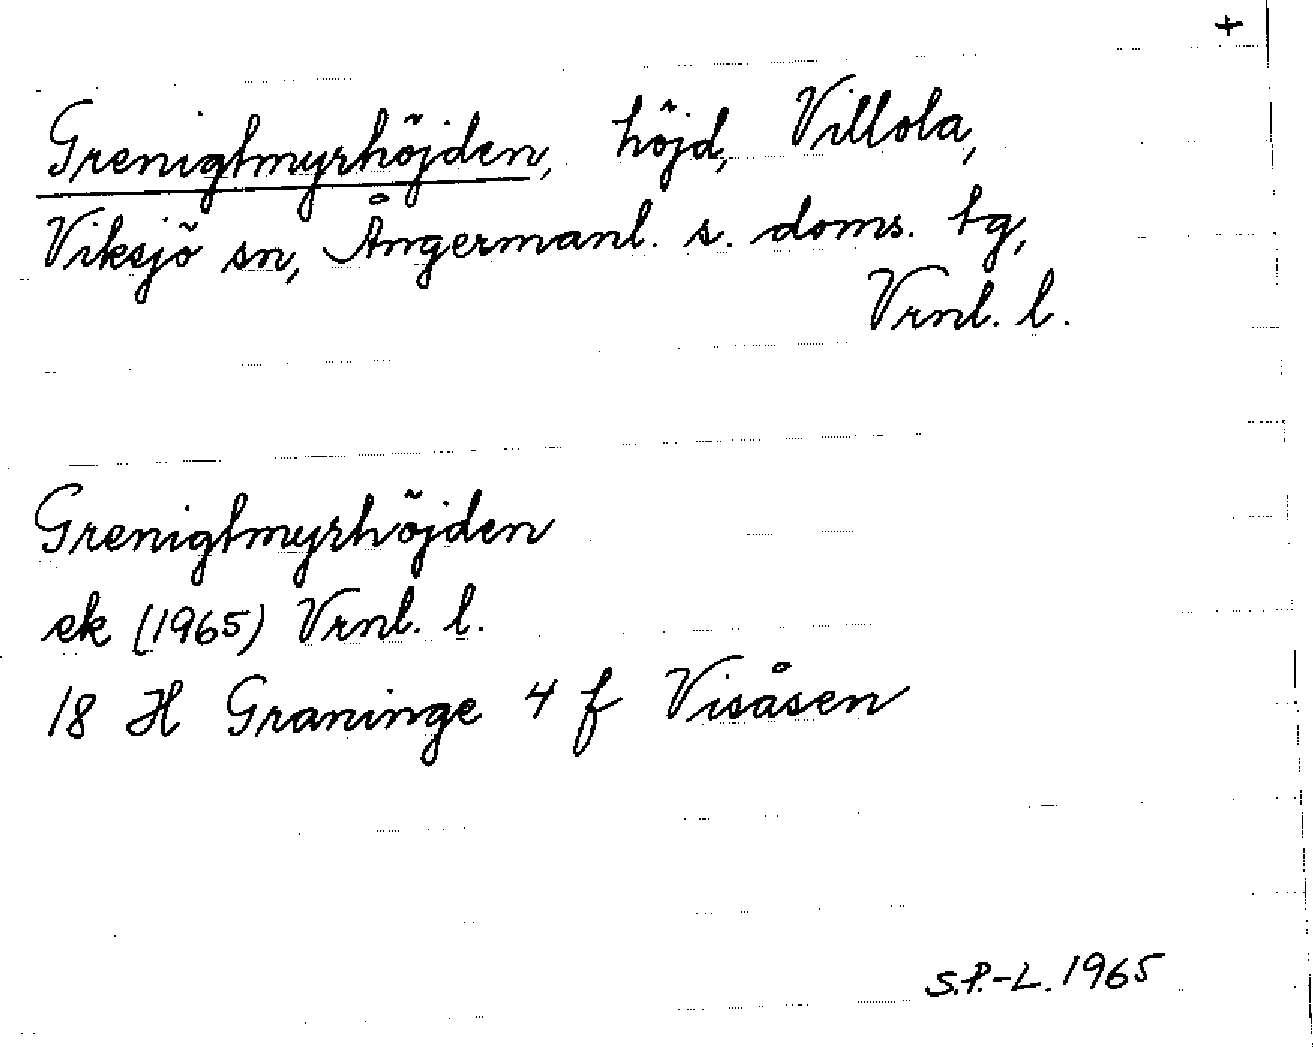 +
Grenigtmyrhöjden, höjd, Villola,
Viksjö sn, Ångermanl. s. doms. tg,
Vrnl. l.
Grenigtmyrhöjden
ek (1965) Vrnl. l.
18 H Graninge 4 f Visåsen
S.P.-L. 1965